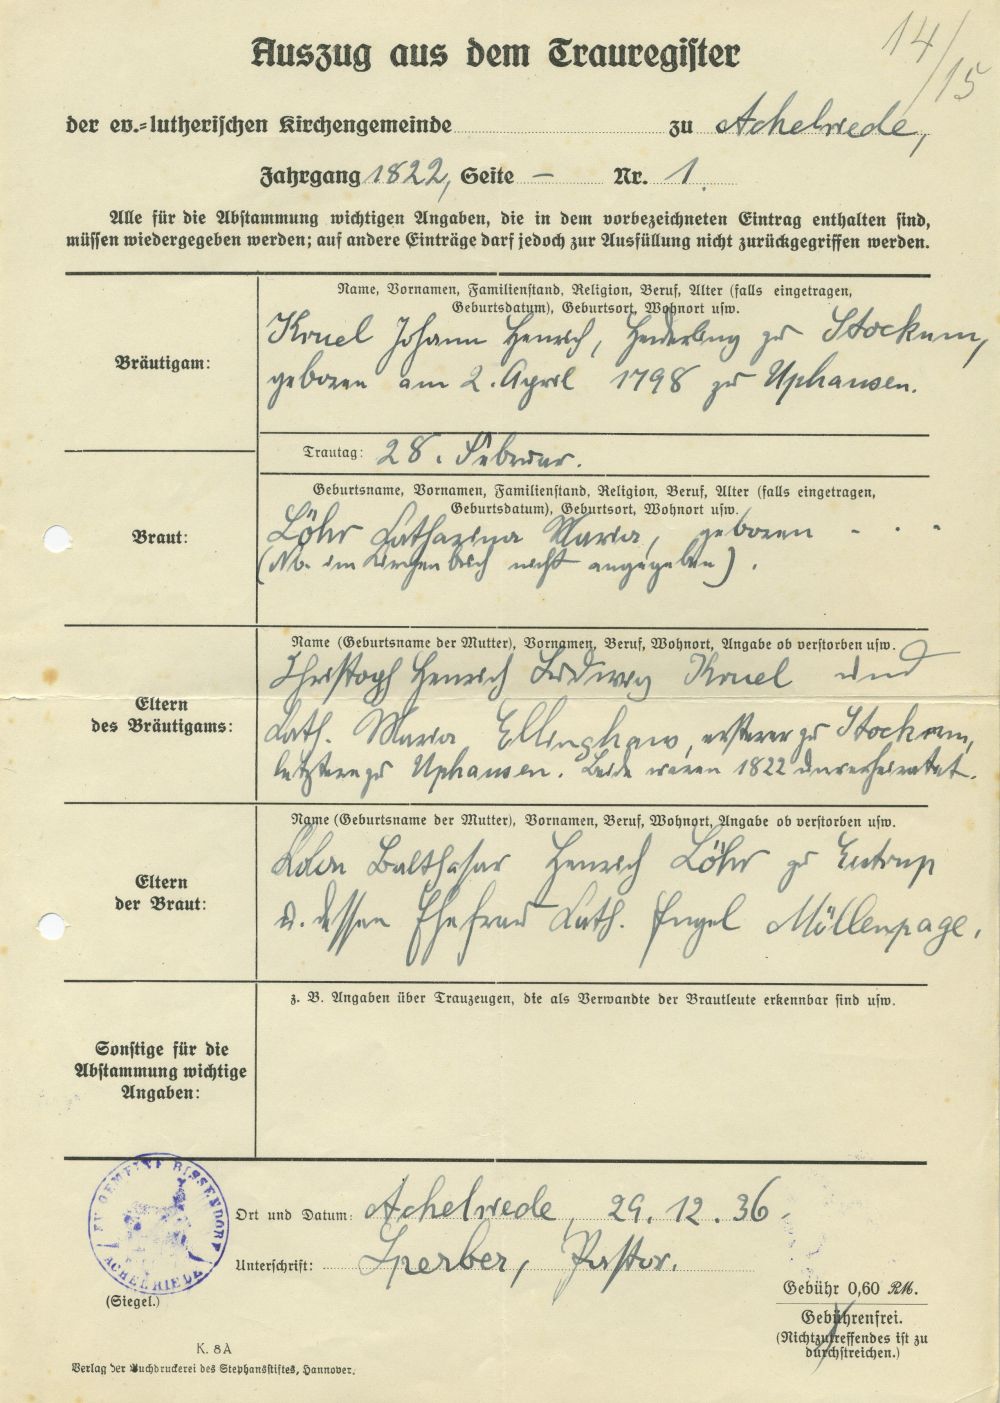 14/15
Auszug aus dem Trauregister
der ev.=lutherischen Kirchengemeinde zu Achelriede,
Jahrgang 1822, Seite – Nr. 1.
Alle für die Abstammung wichtigen Angaben, die in dem vorbezeichneten Eintrag enthalten sind,
müssen wiedergegeben werden; auf andere Einträge darf jedoch zur Ausfüllung nicht zurückgegriffen werden.
Name, Vornamen, Familienstand, Religion, Beruf, Alter (falls eingetragen,
Geburtsdatum), Geburtsort, Wohnort usw.
Bräutigam:
Kruel Johann Henrich, Heuerling zu Stockum,
geboren am 2. April 1798 zu Uphausen.
Trautag: 28. Februar.
Geburtsname, Vornamen, Familienstand, Religion, Beruf, Alter (falls eingetragen,
Geburtsdatum), Geburtsort, Wohnort usw.
Braut:
Löhr Catharina Maria, geboren - - -
(Nb. im Kirchenbuch nicht angegeben).
Name (Geburtsname der Mutter), Vornamen, Beruf, Wohnort, Angabe ob verstorben usw.
Eltern
des Bräutigams:
Christoph Henrich Ludwig Kruel und
Cath. Maria Ellinghaus, ersterer zu Stockum,
letztere zu Uphausen. Beide waren 1822 unverheiratet.
Name (Geburtsname der Mutter), Vornamen, Beruf, Wohnort, Angabe ob verstorben usw.
Eltern
der Braut:
Balthasar Henrich Löhr zu
u. dessen Ehefrau Cath. Engel Möllenpage.
z. B. Angaben über Trauzeugen, die als Verwandte der Brautleute erkennbar sind usw.
Sonstige für die
Abstammung wichtige
Angaben:
EV. GEMEINDE BISSENDORF
ACHELRIEDE
(Siegel.)
Ort und Datum: Achelriede, 29.12.36.
Unterschrift: Sperber, Pastor.
Gebühr 0,60 RM.
Gebührenfrei.
(Nichtzutreffendes ist zu
durchstreichen.)
K. 8A
Verlag der Buchdruckerei des Stephansstiftes, Hannover.